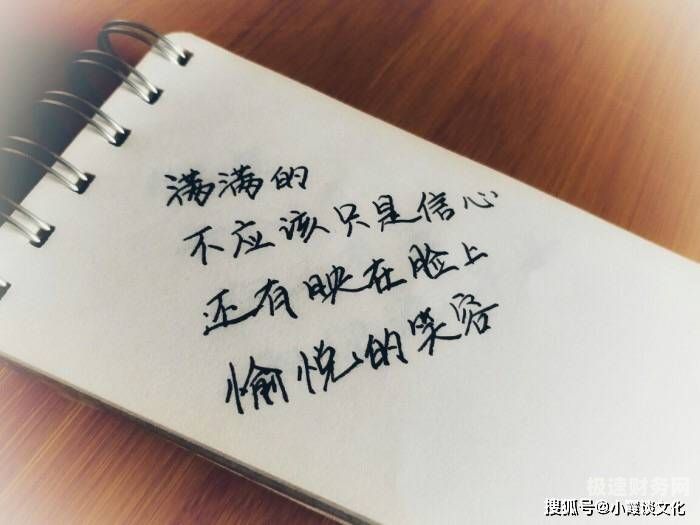 满满的
不应该只是信心
还有映在脸上
愉悦的笑容
极速财务网
搜狐号@小霞谈文化